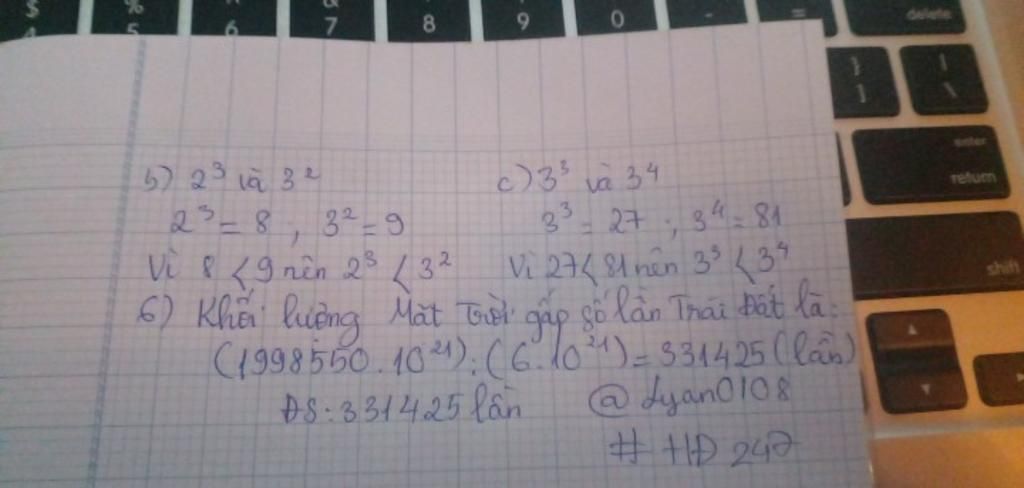 $ % & 
4 5 6 7 8 9 0 - =
delete
} ]
| \
enter
return
shift
b) 2³ và 3²
c) 3³ và 3⁴
2³ = 8 ; 3² = 9
3³ = 27 ; 3⁴ = 81
Vì 8 < 9 nên 2³ < 3²
Vì 27 < 81 nên 3³ < 3⁴
6) Khối lượng Mặt Trời gấp số lần Trái Đất là:
(1998550.10²¹) : (6.10²¹) = 331425 (lần)
ĐS: 331425 lần
@ Lyan0108
# HĐ 247